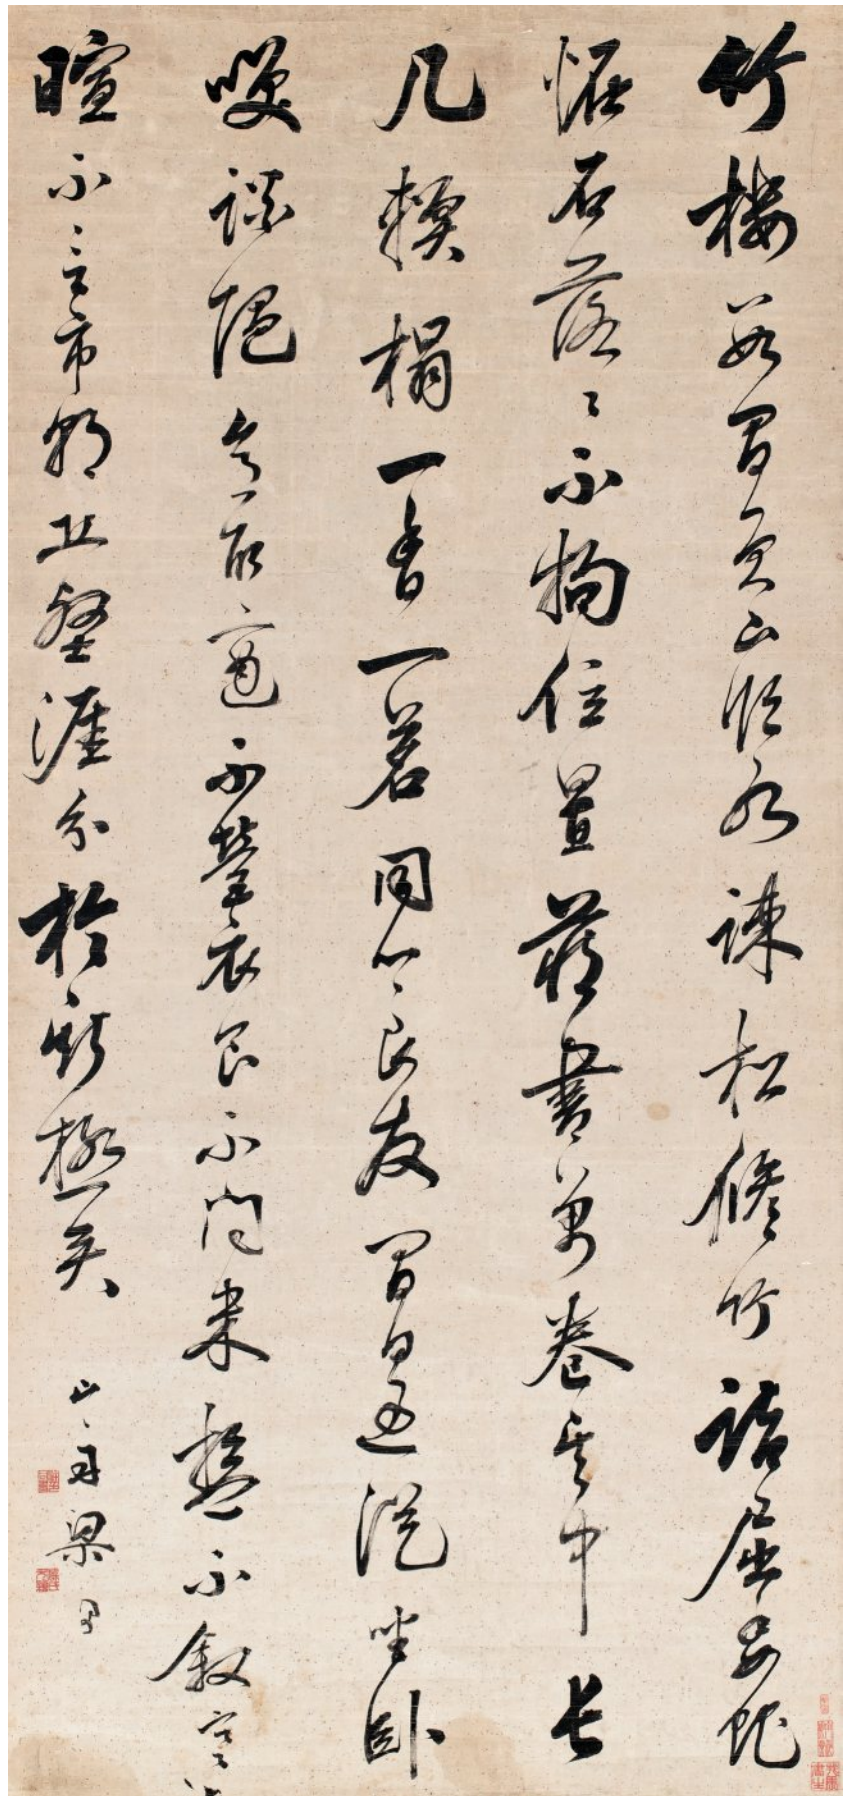 竹樓數間負山臨水疎松脩竹詰屈委蛇
怪石落落不拘位置藏書萬卷其中長
几軟榻一香一茗同心良友閒日過從坐臥
咲談隨意所適不營衣食不問米鹽不敘寒
暄不言市朝丘壑涯分於斯極矣
山舟梁